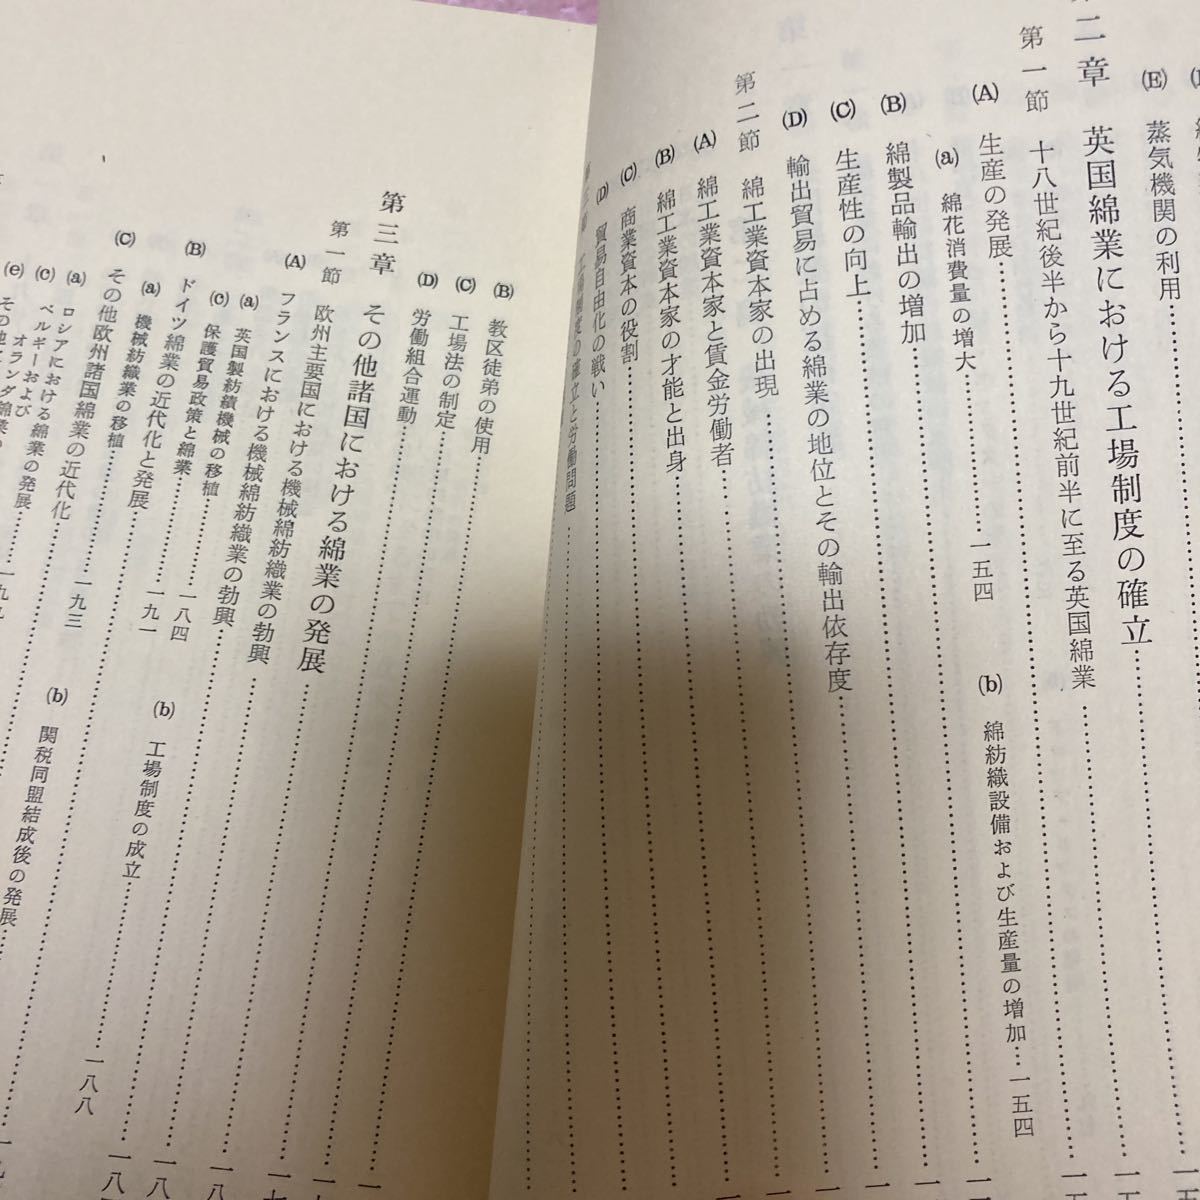 (E) 蒸気機関の利用
二章 英国綿業における工場制度の確立
第一節 十八世紀後半から十九世紀前半に至る英国綿業
(A) 生産の発展
(a) 綿花消費量の増大 一五四 (b) 綿紡織設備および生産量の増加 一五四
(B) 綿製品輸出の増加
(C) 生産性の向上
(D) 輸出貿易に占める綿業の地位とその輸出依存度
第二節 綿工業資本家の出現
(A) 綿工業資本家と賃金労働者
(B) 綿工業資本家の才能と出身
(C) 商業資本の役割
(D) 貿易自由化の戦い
工場制度の確立と労働問題
(B) 教区徒弟の使用
(C) 工場法の制定
(D) 労働組合運動
第三章 その他諸国における綿業の発展
第一節 欧州主要国における機械綿紡織業の勃興
(A) フランスにおける機械綿紡織業の勃興
(a) 英国製紡績機械の移植 一八四 (b) 工場制度の成立
(c) 保護貿易政策と綿業
(B) ドイツ綿業の近代化と発展
(a) 機械紡織業の移植 一九一 (b) 関税同盟結成後の発展
(C) その他欧州諸国綿業の近代化
(a) ロシアにおける綿業の発展 一九三
(c) ベルギーおよびオランダ綿業
(e) その他
一八八